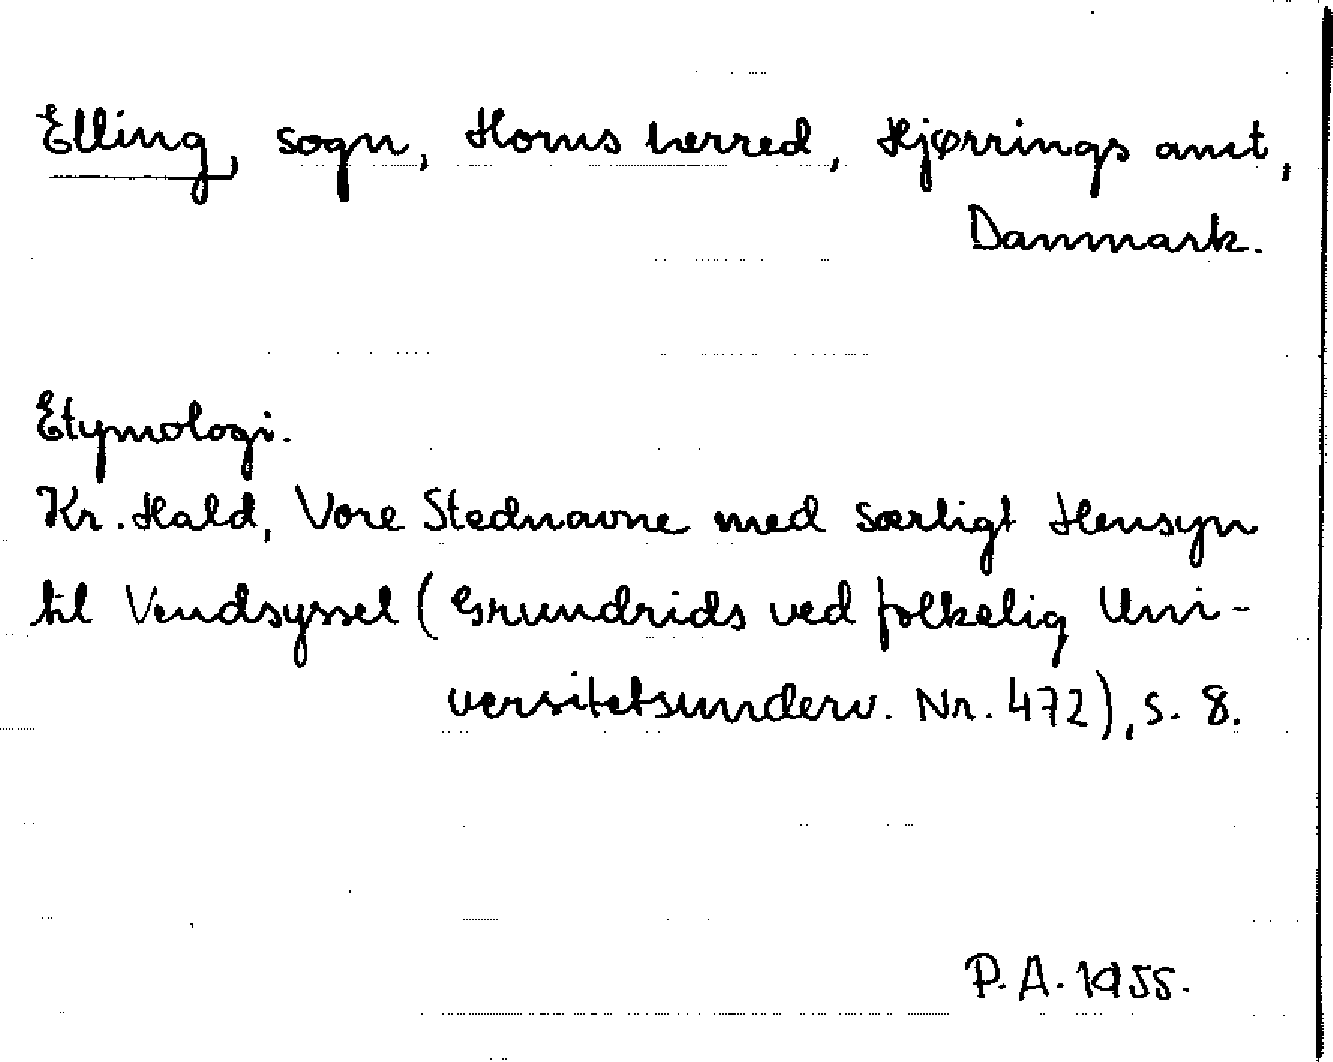 Elling, sogn, Horns herred, Hjørrings amt,
Danmark.
Etymologi.
Kr. Hald, Vore Stednavne med særligt Hensyn
til Vendsyssel (Grundrids ved folkelig Uni-
versitetsunderv. Nr. 472), s. 8.
P. A. 1955.